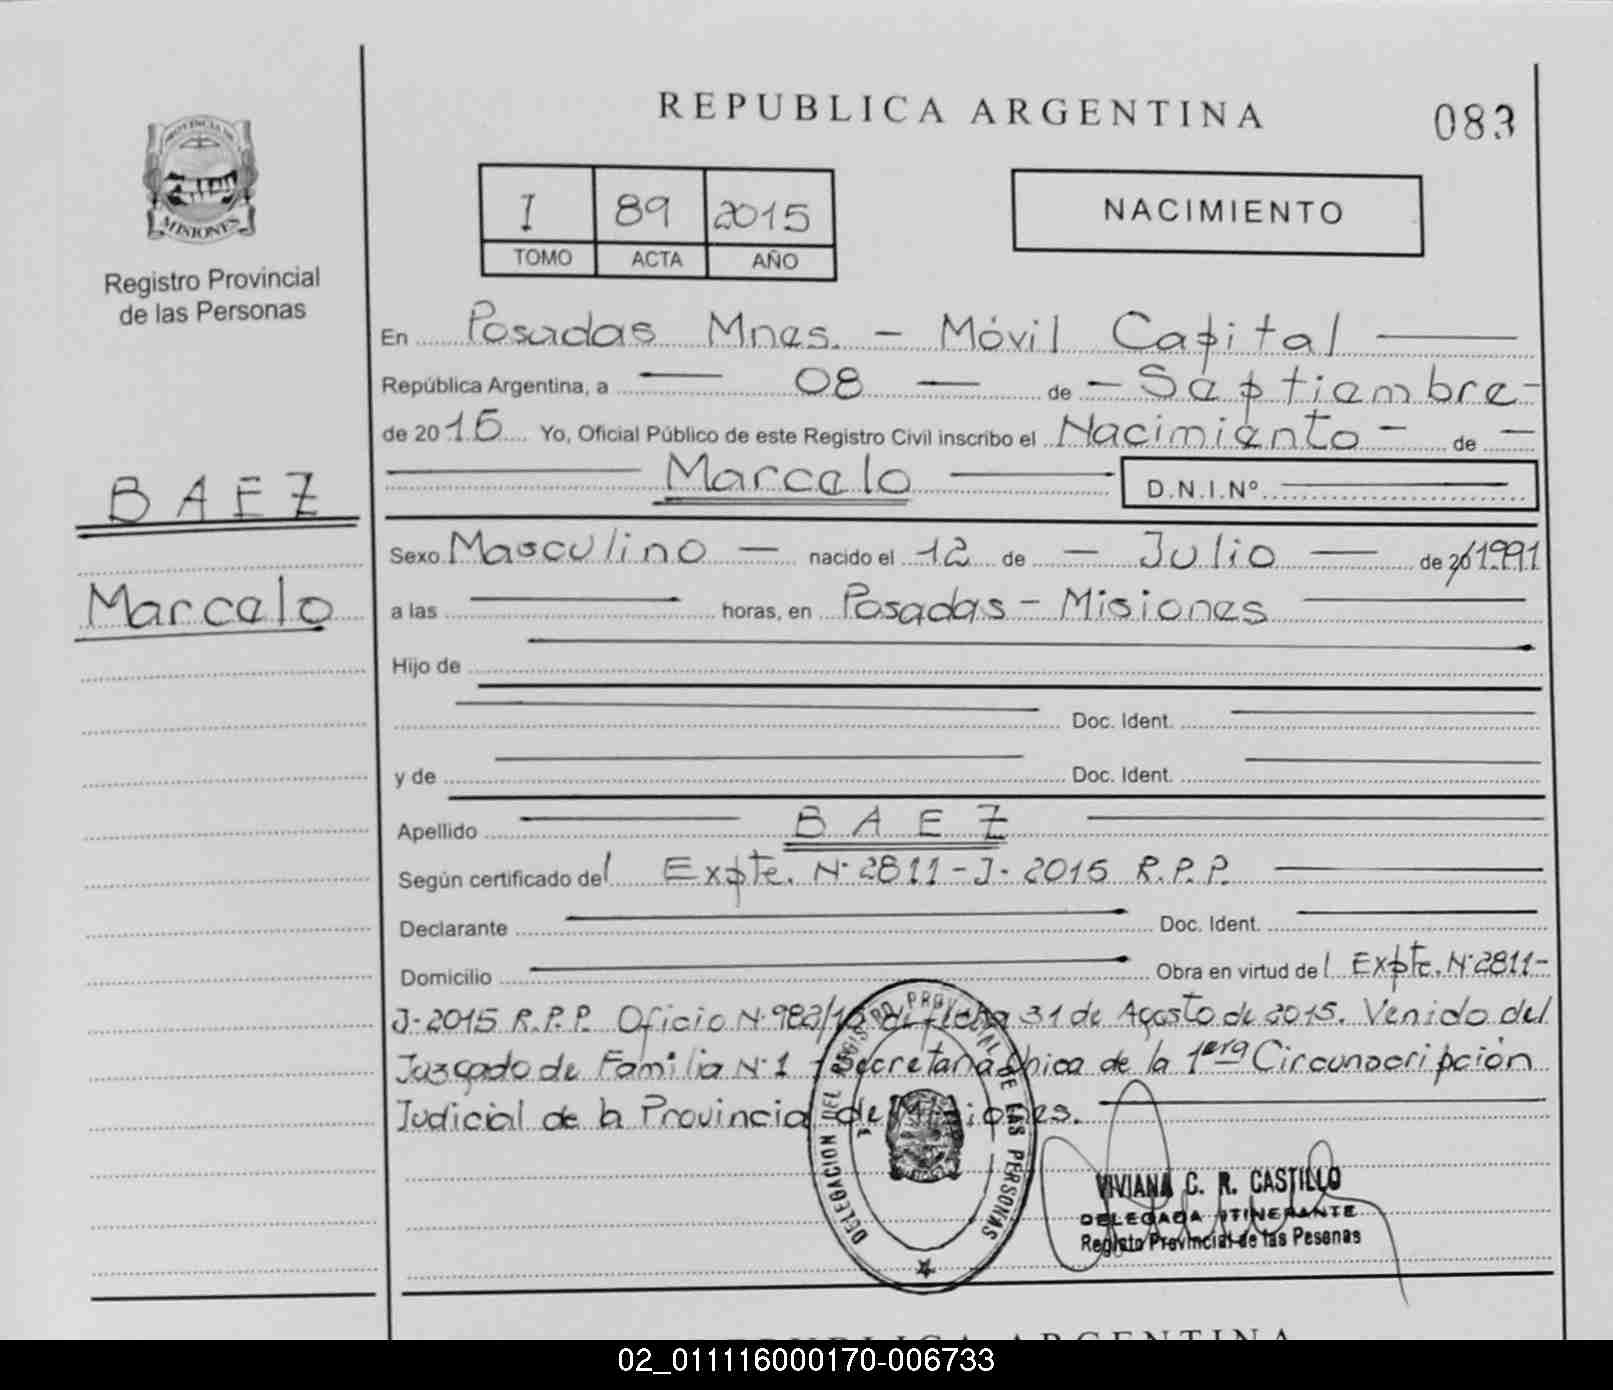 PROVINCIA DE
MISIONES
Registro Provincial
de las Personas
BAEZ
Marcelo
REPUBLICA ARGENTINA
083
I 89 2015
TOMO ACTA AÑO
NACIMIENTO
En Posadas Mnes. - Móvil Capital
República Argentina, a 08 de - Septiembre -
de 2015 Yo, Oficial Público de este Registro Civil inscribo el Nacimiento - de -
Marcelo D.N.I.Nº
Sexo Masculino - nacido el 12 de - Julio - de 20 1991
a las horas, en Posadas - Misiones
Hijo de
Doc. Ident.
y de Doc. Ident.
Apellido BAEZ
Según certificado del Expte. Nº 2811-J-2015 R.P.P.
Declarante Doc. Ident.
Domicilio Obra en virtud del Expte. Nº 2811-
J-2015 R.P.P. Oficio Nº 982/15 de fecha 31 de Agosto de 2015. Venido del
Juzgado de Familia Nº 1 Secretaria Unica de la 1era Circunscripción
Judicial de la Provincia de Misiones.
DELEGACION DEL REGISTRO PROVINCIAL DE LAS PERSONAS
VIVIANA C. R. CASTILLO
DELEGADA ITINERANTE
Registo Provincial de las Pesonas
REPUBLICA ARGENTINA
02_011116000170-006733